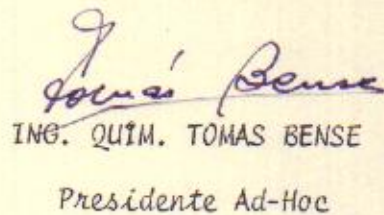 Tomás Bense
ING. QUIM. TOMAS BENSE
Presidente Ad-Hoc